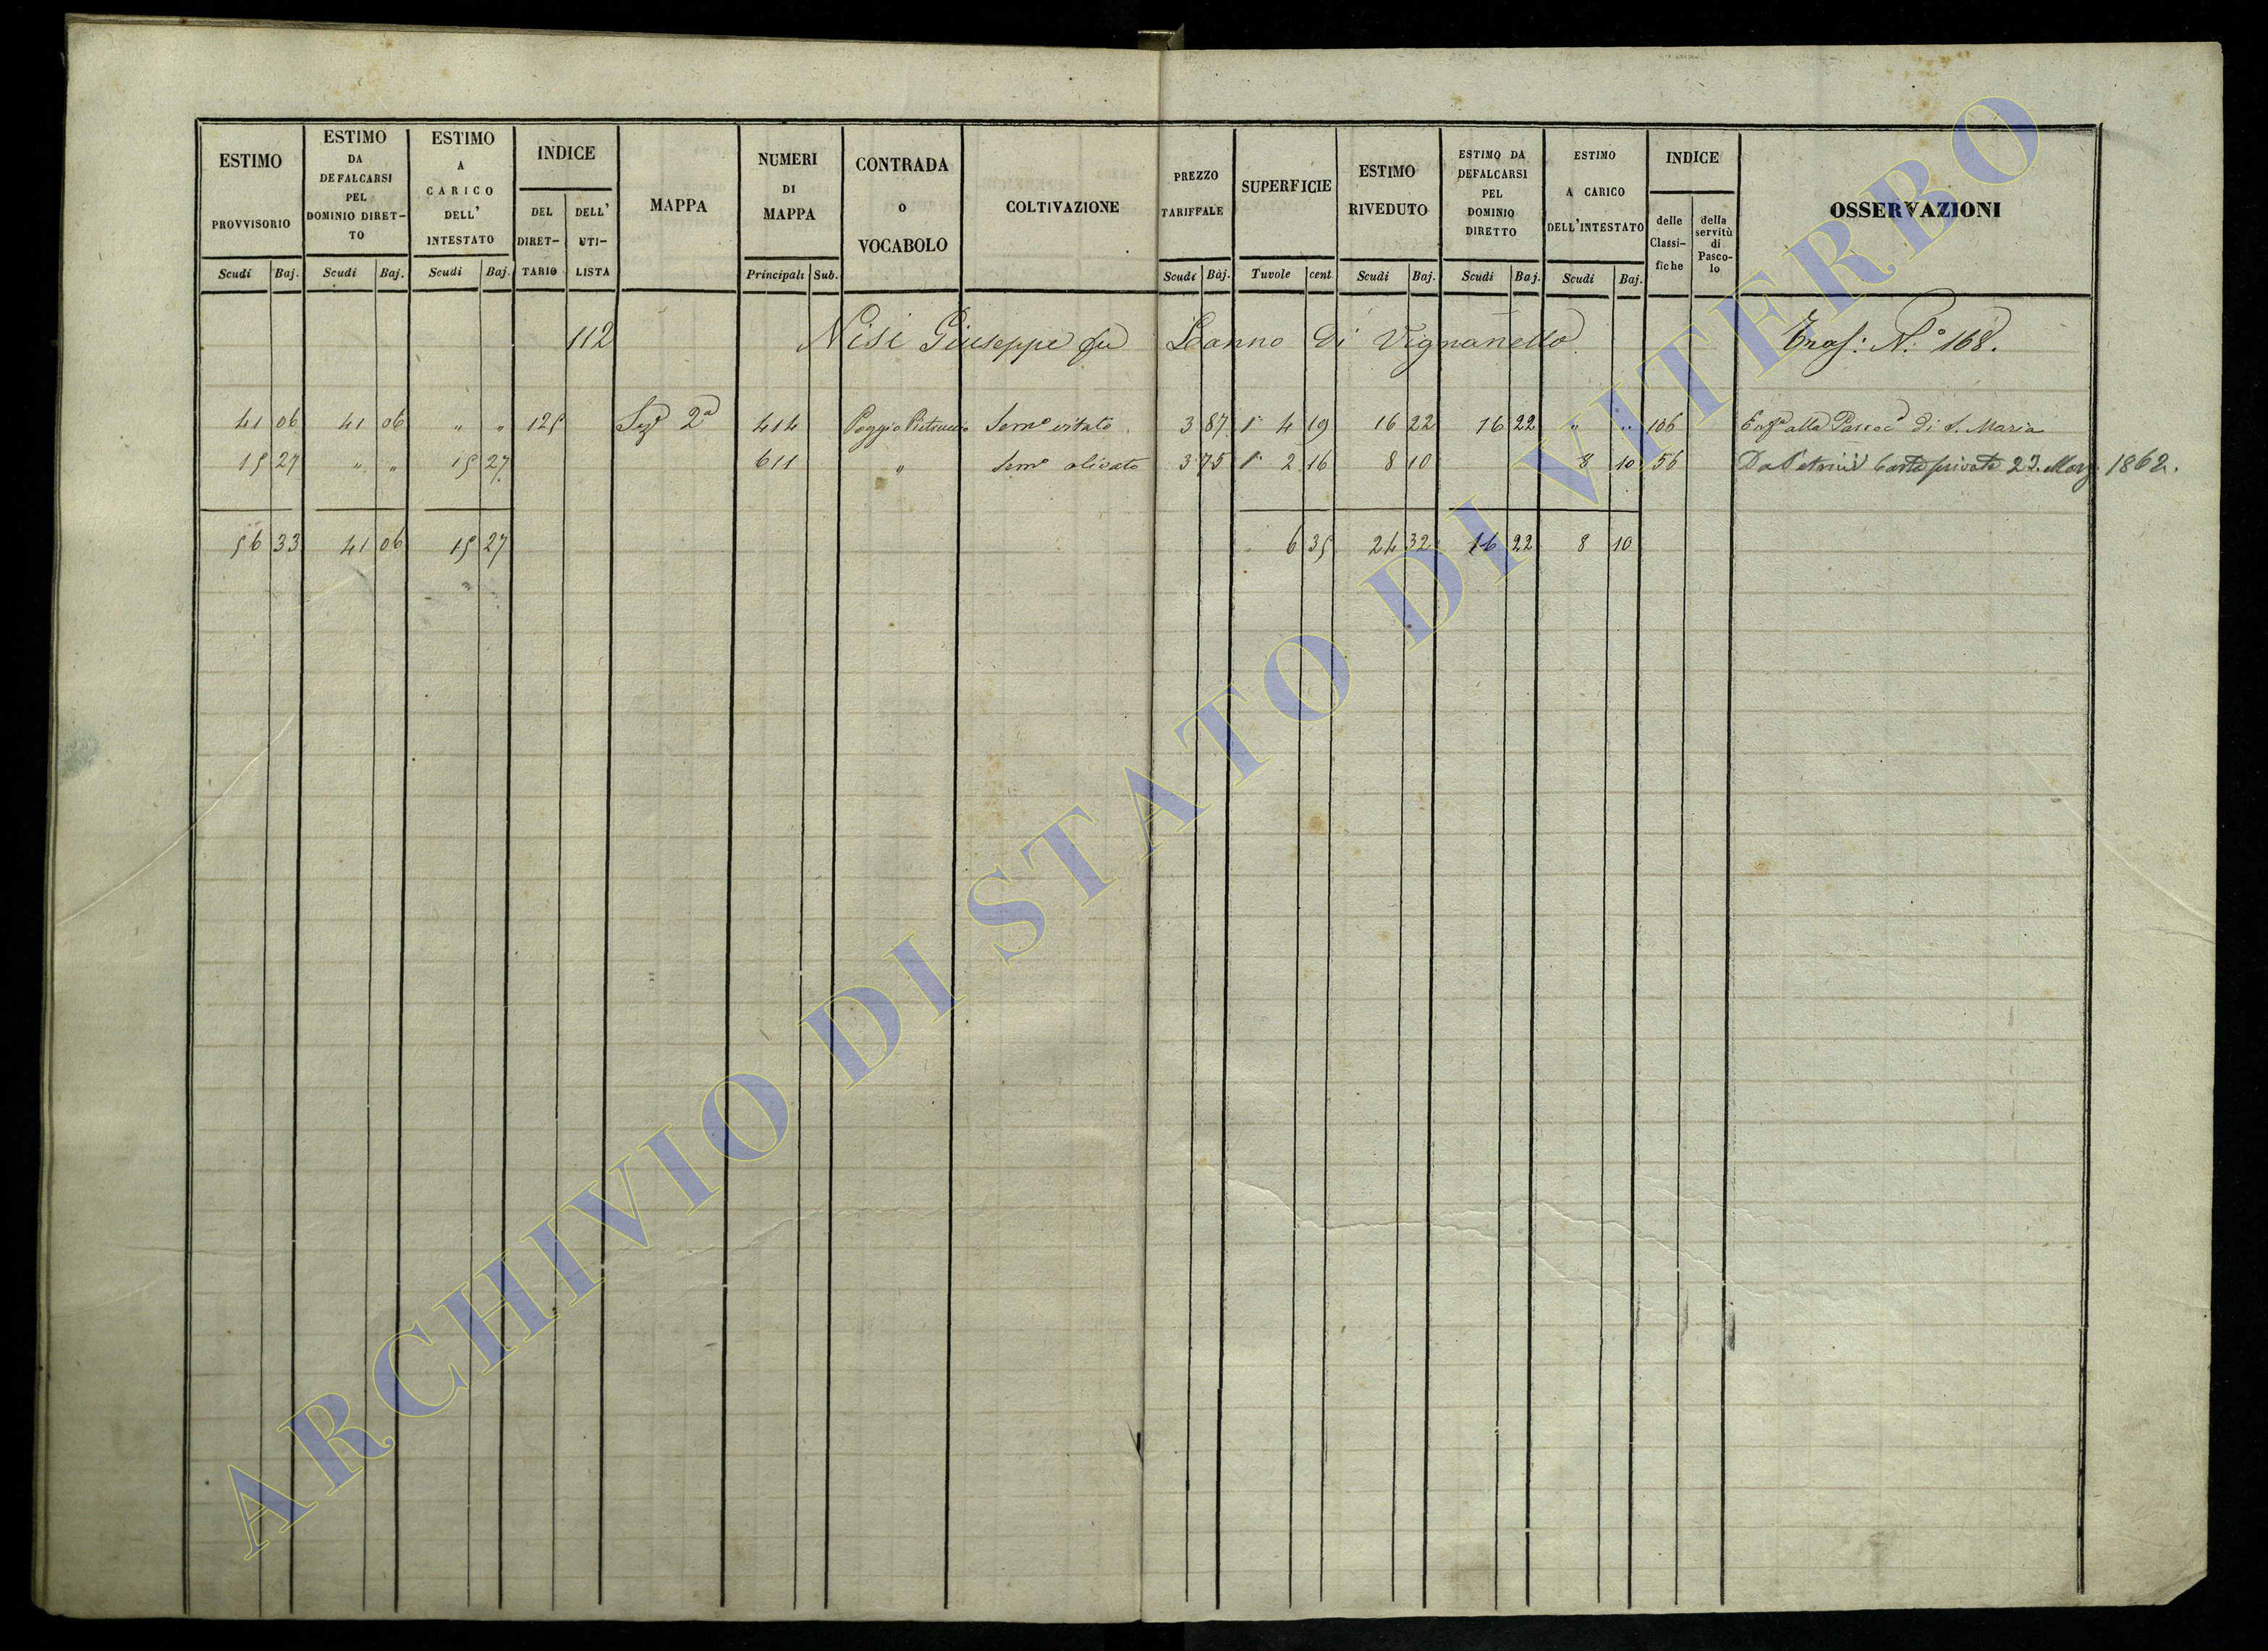 ESTIMO PROVVISORIO Scudi Baj.
ESTIMO DA DEFALCARSI PEL DOMINIO DIRET-TO Scudi Baj.
ESTIMO A CARICO DELL' INTESTATO Scudi Baj.
INDICE DEL DIRET-TARIO DELL' UTI-LISTA
MAPPA
NUMERI DI MAPPA Principali Sub.
CONTRADA o VOCABOLO
COLTIVAZIONE
PREZZO TARIFFALE Scudi Baj.
SUPERFICIE Tavole cent
ESTIMO RIVEDUTO Scudi Baj.
ESTIMO DA DEFALCARSI PEL DOMINIO DIRETTO Scudi Baj.
ESTIMO A CARICO DELL'INTESTATO Scudi Baj.
INDICE delle Classi-fiche della servitù di Pasco-lo
OSSERVAZIONI
112 Nisi Giuseppe fu di Vignanello Tras: N.° 168.
41 06 41 06 " " 125 Sez.e 2a 414 Poggio Pietruccio Sem.o vitato 3 87 4 19 16 22 16 22 " " 106 alla di S. Maria
15 27 " " 15 27 611 " Sem.o olivato 3 75 2 16 8 10 8 10 56 Da Petrini Carta privata 23. Marz. 1862.
56 33 41 06 15 27 6 35 24 32 16 22 8 10
ARCHIVIO DI STATO DI VITERBO